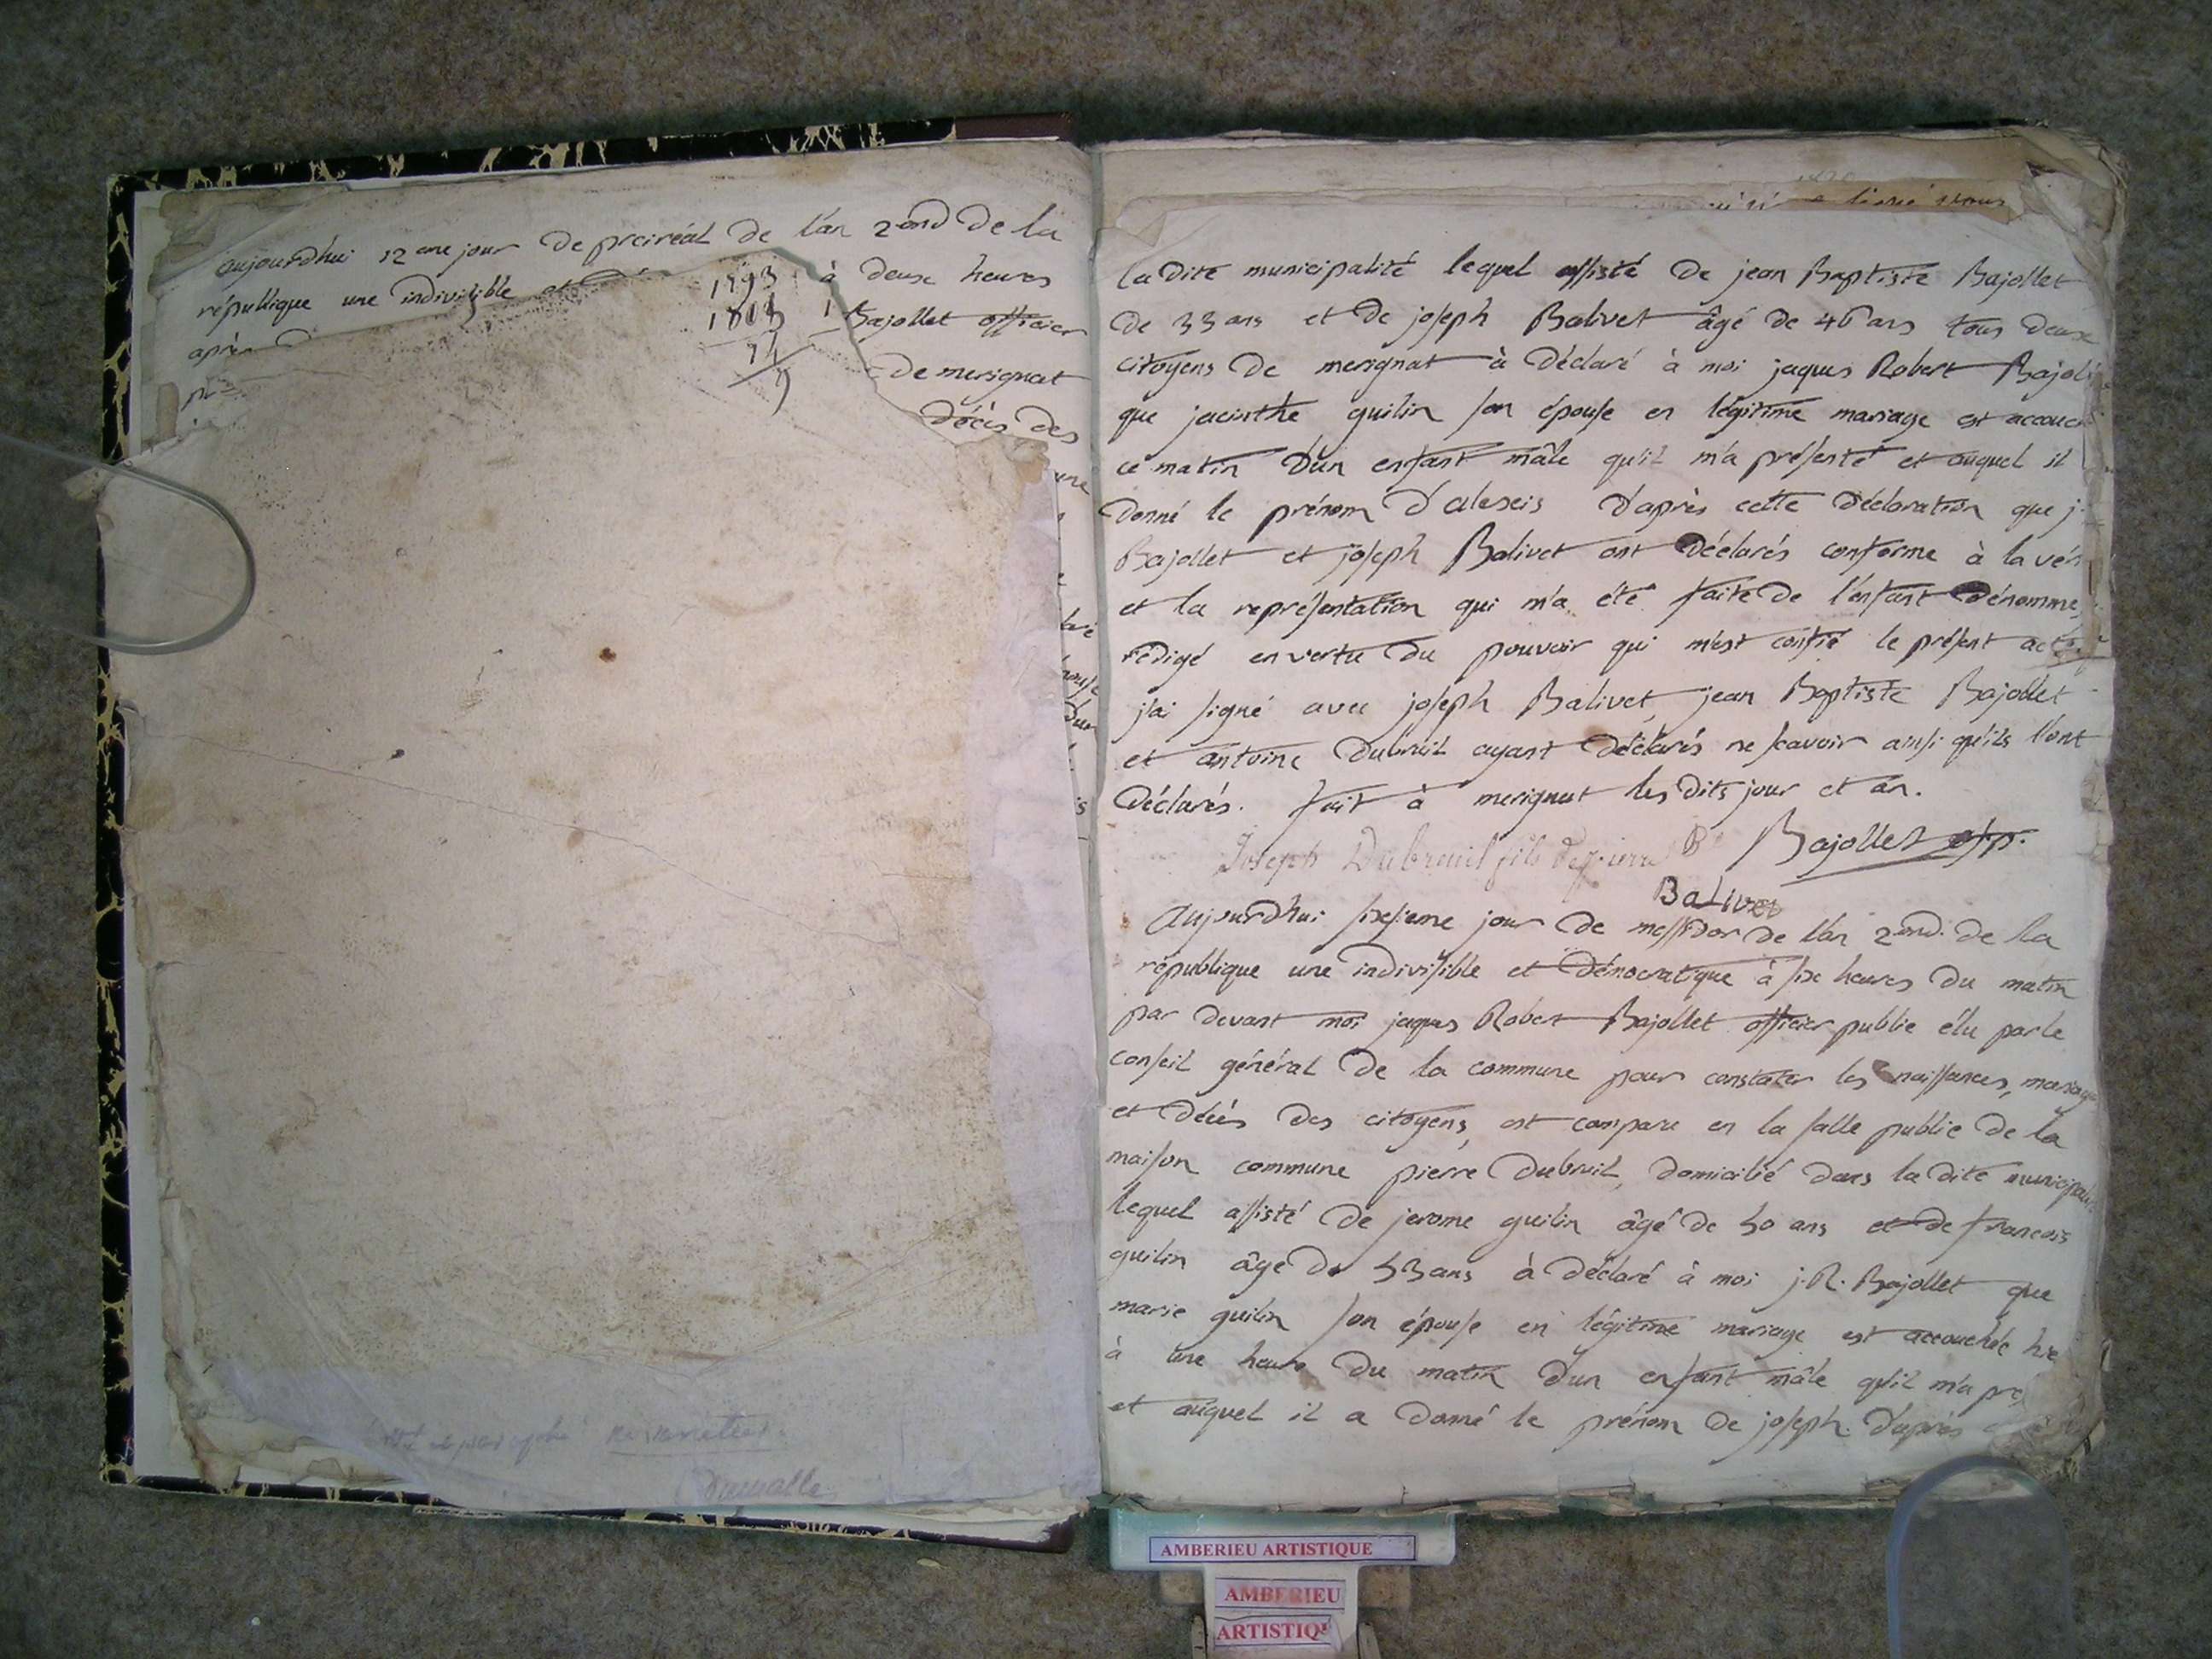 aujourdhui 12 eme jour de preiréal de l'an 2ond de la
république une indivisible et
à deux heures
après
1793
1803
Bajollet officier
de merignat
décès des
une
la dite municipalité lequel assisté de jean Baptiste Bajollet
de 33 ans et de joseph Balivet âgé de 46 ans tous deux
citoyens de merignat à déclaré à moi jaques Robert Bajoll
que jacinthe guilin son épouse en légitime mariage est accouc
ce matin d'un enfant mâle qu'il m'a présenté et auquel il
donné le prénom d'alexis d'après cette déclaration que j.
Bajollet et joseph Balivet ont déclarés conforme à la vér
et la représentation qui m'a été faite de l'enfant dénommé
rédigé en vertu du pouvoir qui m'est confié le présent acte
j'ai signé avec joseph Balivet, jean Baptiste Bajollet
et antoine dubruil ayant déclarés ne scavoir ainsi qu'ils l'ont
déclarés. fait à merignat les dits jour et an.
Joseph Dubreuil fils de pierre Bajollet off. p.
Balivet
Aujourdhui sixsieme jour de messidor de l'an 2ond. de la
république une indivisible et démocratique à six heures du matin
par devant moi jaques Robert Bajollet officier public élu par le
conseil général de la commune pour constater les naissances, mariage
et décès des citoyens, est comparu en la salle public de la
maison commune pierre dubruil, domicilié dans la dite municipali
lequel assisté de jerome guilin âgé de 50 ans et de francois
guilin âgé de 53 ans à déclaré à moi j. R. Bajollet que
marie guilin son épouse en légitime mariage est accouchée hie
à une heure du matin d'un enfant mâle qu'il m'a pré
et auquel il a donné le prénom de joseph. d'après
AMBERIEU ARTISTIQUE
AMBERIEU
ARTISTIQU